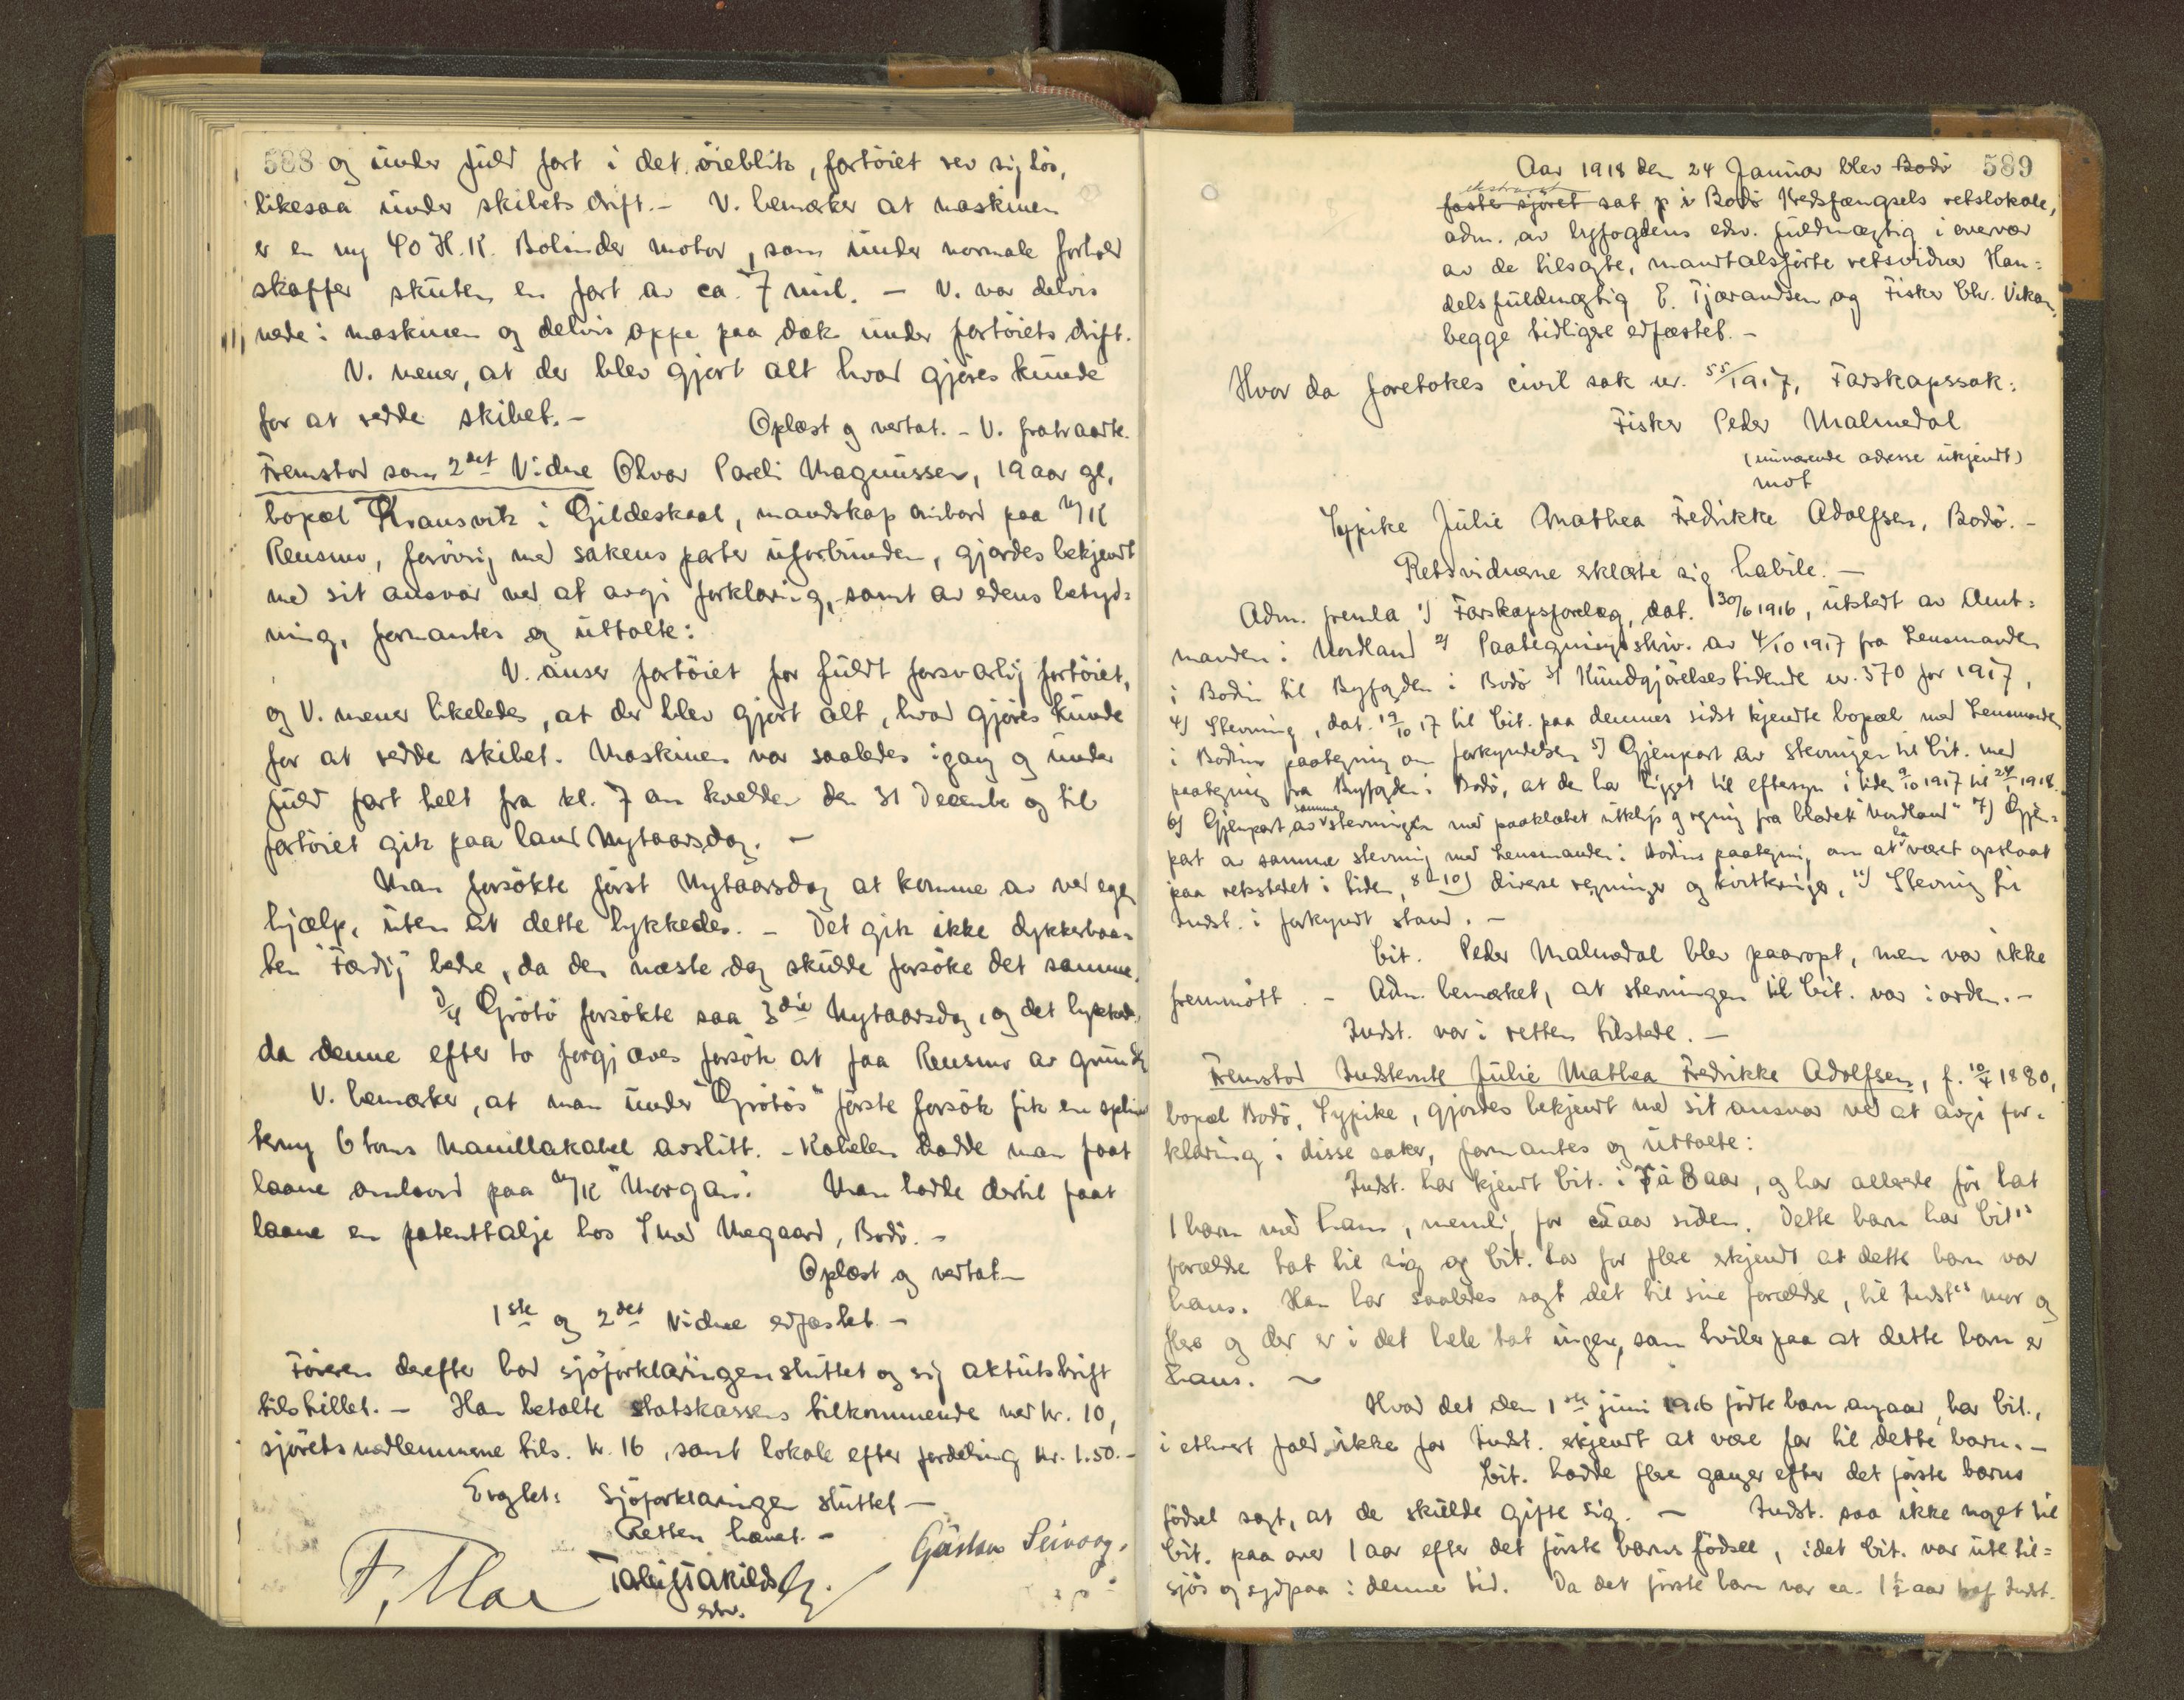 588 og under fuld fart i det øieblik, fartöiet rev sig lös,
likesaa under skibets drift. - V. bemærker at maskinen
er en ny 40 H.K. Bolinder motor, som under normale forhold
skaffer skuten en fart av ca. 7 mil. - V. var delvis
nede i maskinen og delvis oppe paa dæk under fartöiets drift.
V. mener, at der blev gjort alt hvad gjöres kunde
for at redde skibet. -
Oplæst og vertat. - V. fratraadte.
Fremstod som 2det Vidne Olvar Pareli Magnussen, 19 aar gl.
bopæl i Gildeskaal, mandskap ombord paa M/K
Rensmo, forövrig med sakens parter uforbunden, gjordes bekjendt
med sit ansvar ved at avgi forklaring, samt av edens betyd=
ning, formantes og uttalte:
V. anser fartöiet for fuldt forsvarlig fortöiet,
og V. mener likeledes, at der blev gjort alt, hvad gjöres kunde
for at redde skibet. Maskinen var saaledes igang og under
fuld fart helt fra kl. 7 om kvelden den 31 December og til
fartöiet gik paa land Nytaarsdag. -
Man forsökte först Nytaarsdag at komme av ved egen
hjælp, uten at dette lykkedes. - Det gik ikke dykkerbaa=
ten "Færdig" bedre, da den næste dag skulde forsöke det samme.
D/S Grötö forsökte saa 3die Nytaarsdag, og det lykkedes
da denne efter to forgjæves forsök at faa Rensmo av grunden
V. bemærker, at man under "Grötös" förste forsök fik en splin
terny 6 toms Manillakabel avslitt. - Kabelen hadde man faat
laane ombord paa M/K "Morgan". Man hadde dertil faat
laane en patenttalje hos Smed Megaard, Bodö. -
Oplæst og vertat -
1ste og 2det Vidne edfæstet. -
Föreren derefter bad sjöforklaringen sluttet og sig aktutskrift
tilstillet. - Han betalte statskassens tilkommende med kr. 10,
sjörets medlemmerne tils. kr. 16, samt lokale efter fordeling kr. 1.50. -
Sjöforklaringen sluttet -
Retten hævet. -
Gustav
edv.
Aar 1918 den 24 Januar blev Bodö 589
ekstraret
faste sjöret sat p i Bodö Kredsfængsels retslokale,
adm. av byfogdens edsv. fuldmægtig i overvær
av de tilsagte, mandtalsförte retsvidner Han=
delsfuldmægtig E. Tjærandsen og Fisker Chr. Vikan,
begge tidligere edfæstet. -
Hvor da foretokes civil sak nr. 55/1917, Farskapssak:
Fisker Peder Malmedal
(nuværende adresse ukjendt)
mot
Sypike Julie Mathea Fredrikke Adolfsen, Bodö. -
Retsvidnerne erklærte sig habile. -
Adm. fremla 1) Farskapsforelæg, dat. 30/6 1916, utstedt av Amt=
manden i Nordland 2) Paategningsskriv. av 4/10 1917 fra Lensmanden
i Bodin til Byfogden i Bodö 3) Kundgjörelsestidende nr. 370 for 1917,
4) Stevning, dat. 19/10 17 til Cit. paa dennes sidst kjendte bopæl med Lensmanden
i Bodins paategning om forkyndelsen 5) Gjenpart av stevningen til Cit. med
paategning fra Byfogden i Bodö, at den har ligget til eftersyn i tiden 9/10 1917 til 24/1 1918.
6) Gjenpart av samme stevningen med paaklæbet utklip og regning fra bladet "Nordland" 7) Gjen=
part av samme stevning med Lensmanden i Bodins paategning om at ha været opslaat
paa retsstedet i tiden, 8-10) diverse regninger og kvitteringer, 11) Stevning til
Indst. i forkyndt stand. -
Cit. Peder Malmedal blev paaropt, men var ikke
fremmött. - Adm. bemerket, at stevningen til Cit. var i orden. -
Indst. var i retten tilstede. -
Fremstod Indstevnte Julie Mathea Fredrikke Adolfsen, f. 10/4 1880,
bopæl Bodö, Sypike, gjordes bekjendt med sit ansvar ved at avgi for=
klaring i disse saker, formantes og uttalte:
Indst. har kjendt Cit. i 7 à 8 aar, og har allerede för hat
1 barn med ham, nemlig for 5 aar siden. Dette barn har Cits
forældre tat til sig og Cit. har for flere erkjendt at dette barn var
hans. Han har saaledes sagt det til sine forældre, til Indsts mor og
flere og der er i det hele tat ingen, som tviler paa at dette barn er
hans. -
Hvad det den 1ste juni 1916 födte barn angaar, har Cit.,
i ethvert fald, ikke for Indst. erkjendt at være far til dette barn. -
Cit. hadde flere ganger efter det förste barns
födsel sagt, at de skulde gifte sig. - Indst. saa ikke noget til
Cit. paa over 1 aar efter det förste barns födsel, idet Cit. var ute til=
sjös og sydpaa i denne tid. Da det förste barn var ca. 1½ aar traf Indst.